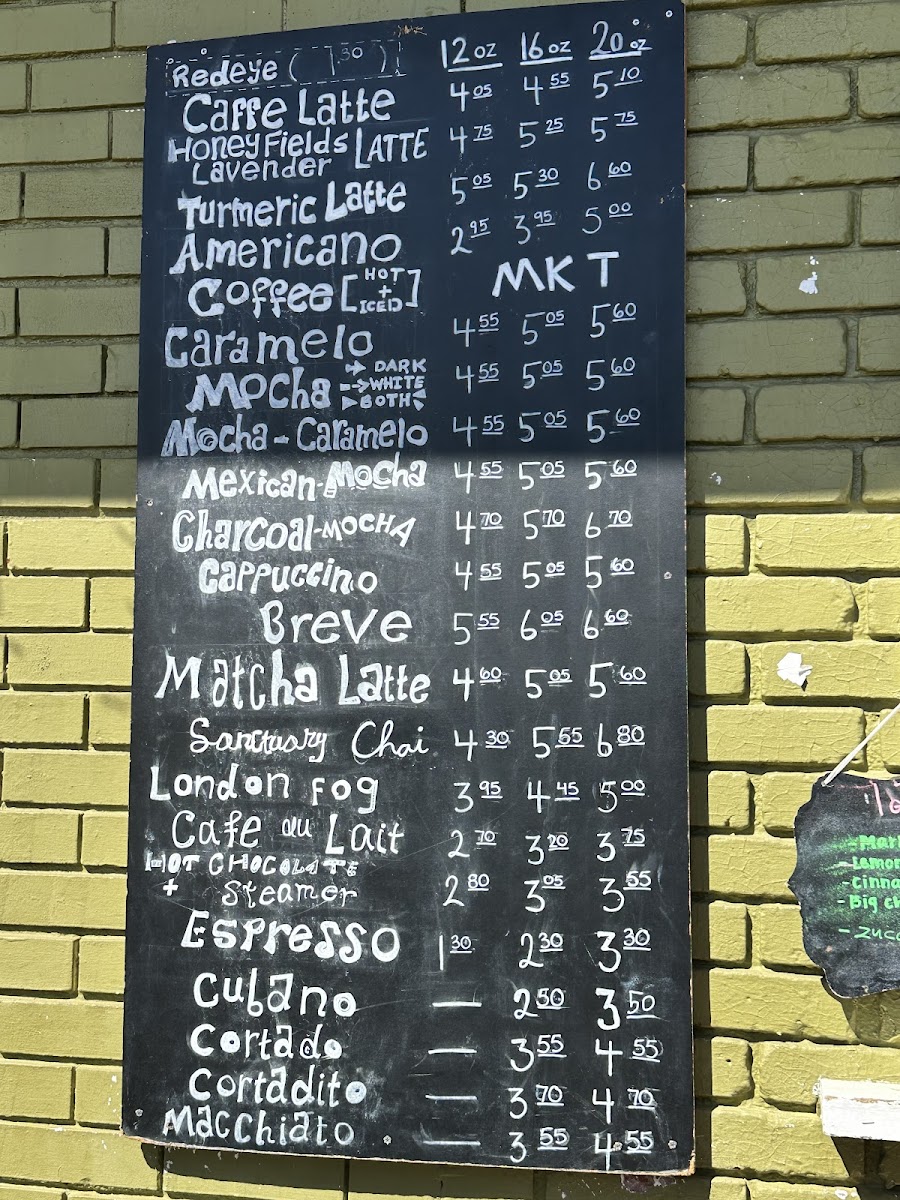 12 oz 16 oz 20 oz
Redeye ( 1 30 )
Caffe Latte 4 05 4 55 5 10
Honey Fields Lavender LATTE 4 75 5 25 5 75
Turmeric Latte 5 05 5 30 6 60
Americano 2 95 3 95 5 00
Coffee [HOT + ICED] MKT
Caramelo 4 55 5 05 5 60
Mocha DARK WHITE BOTH 4 55 5 05 5 60
Mocha - Caramelo 4 55 5 05 5 60
Mexican-Mocha 4 55 5 05 5 60
Charcoal-MOCHA 4 70 5 70 6 70
Cappuccino 4 55 5 05 5 60
Breve 5 55 6 05 6 60
Matcha Latte 4 60 5 05 5 60
Sanctuary Chai 4 30 5 55 6 80
London Fog 3 95 4 45 5 00
Cafe au Lait 2 70 3 20 3 75
HOT CHOCOLATE
+ Steamer 2 80 3 05 3 55
Espresso 1 30 2 30 3 30
Cubano — 2 50 3 50
Cortado — 3 55 4 55
Cortadito — 3 70 4 70
Macchiato — 3 55 4 55
- Big